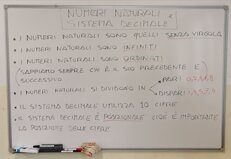 NUMERI NATURALI E
SISTEMA DECIMALE
• I NUMERI NATURALI SONO QUELLI SENZA VIRGOLA
• I NUMERI NATURALI SONO INFINITI
• I NUMERI NATURALI SONO ORDINATI
(SAPPIAMO SEMPRE CHI È IL SUO PRECEDENTE E
SUCCESSIVO
• I NUMERI NATURALI SI DIVIDONO IN
• PARI
• DISPARI
• IL SISTEMA DECIMALE UTILIZZA 10 CIFRE
• IL SISTEMA DECIMALE È POSIZIONALE CIOÈ È IMPORTANTE
LA POSIZIONE DELLE CIFRE